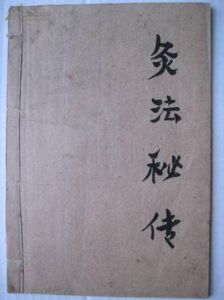 灸法秘传